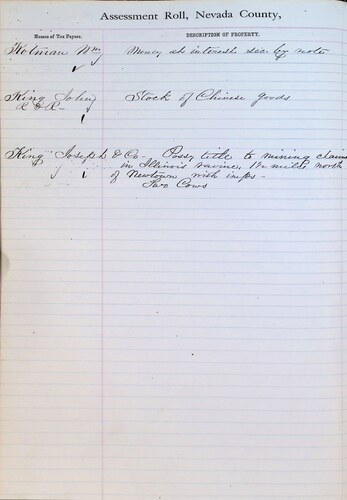 Assessment Roll, Nevada County,
Names of Tax Payers. DESCRIPTION OF PROPERTY.
Holman Wm Money at interest sec. by note
King John Stock of Chinese goods
R & R
King Joseph & Co. Possy title to mining claims
in Illinois ravine, 1½ miles north
of Newtown with imps -
Two Cows